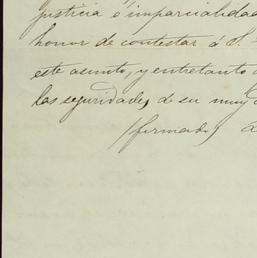 justicia e imparcialidad
honor de contestar á S.
este asunto, y entretanto
las seguridades de su muy
(firmado)